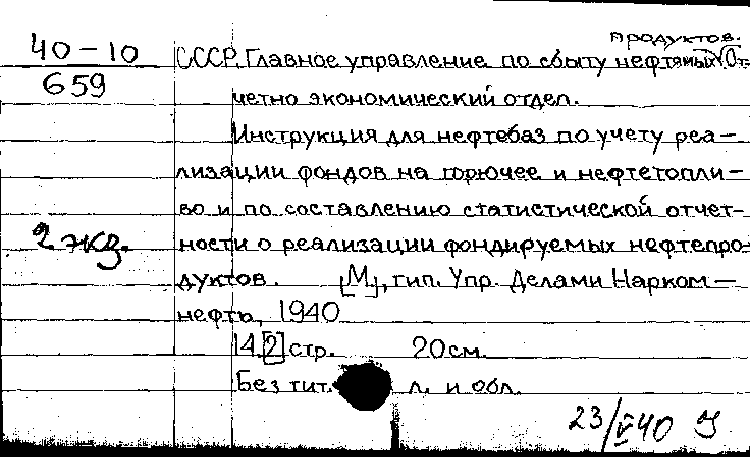 продуктов.
40-10 СССР. Главное управление по сбыту нефтяных От-
659 четно экономический отдел.
Инструкция для нефтебаз по учету реа-
лизации фондов на горючее и нефтетопли-
во и по составлению статистической отчет-
2 экз. ности о реализации фондируемых нефтепро-
дуктов. [М], тип. Упр. Делами Нарком-
нефти, 1940
14.[2] стр. 20 см.
Без тит. л. и обл.
23/V 40